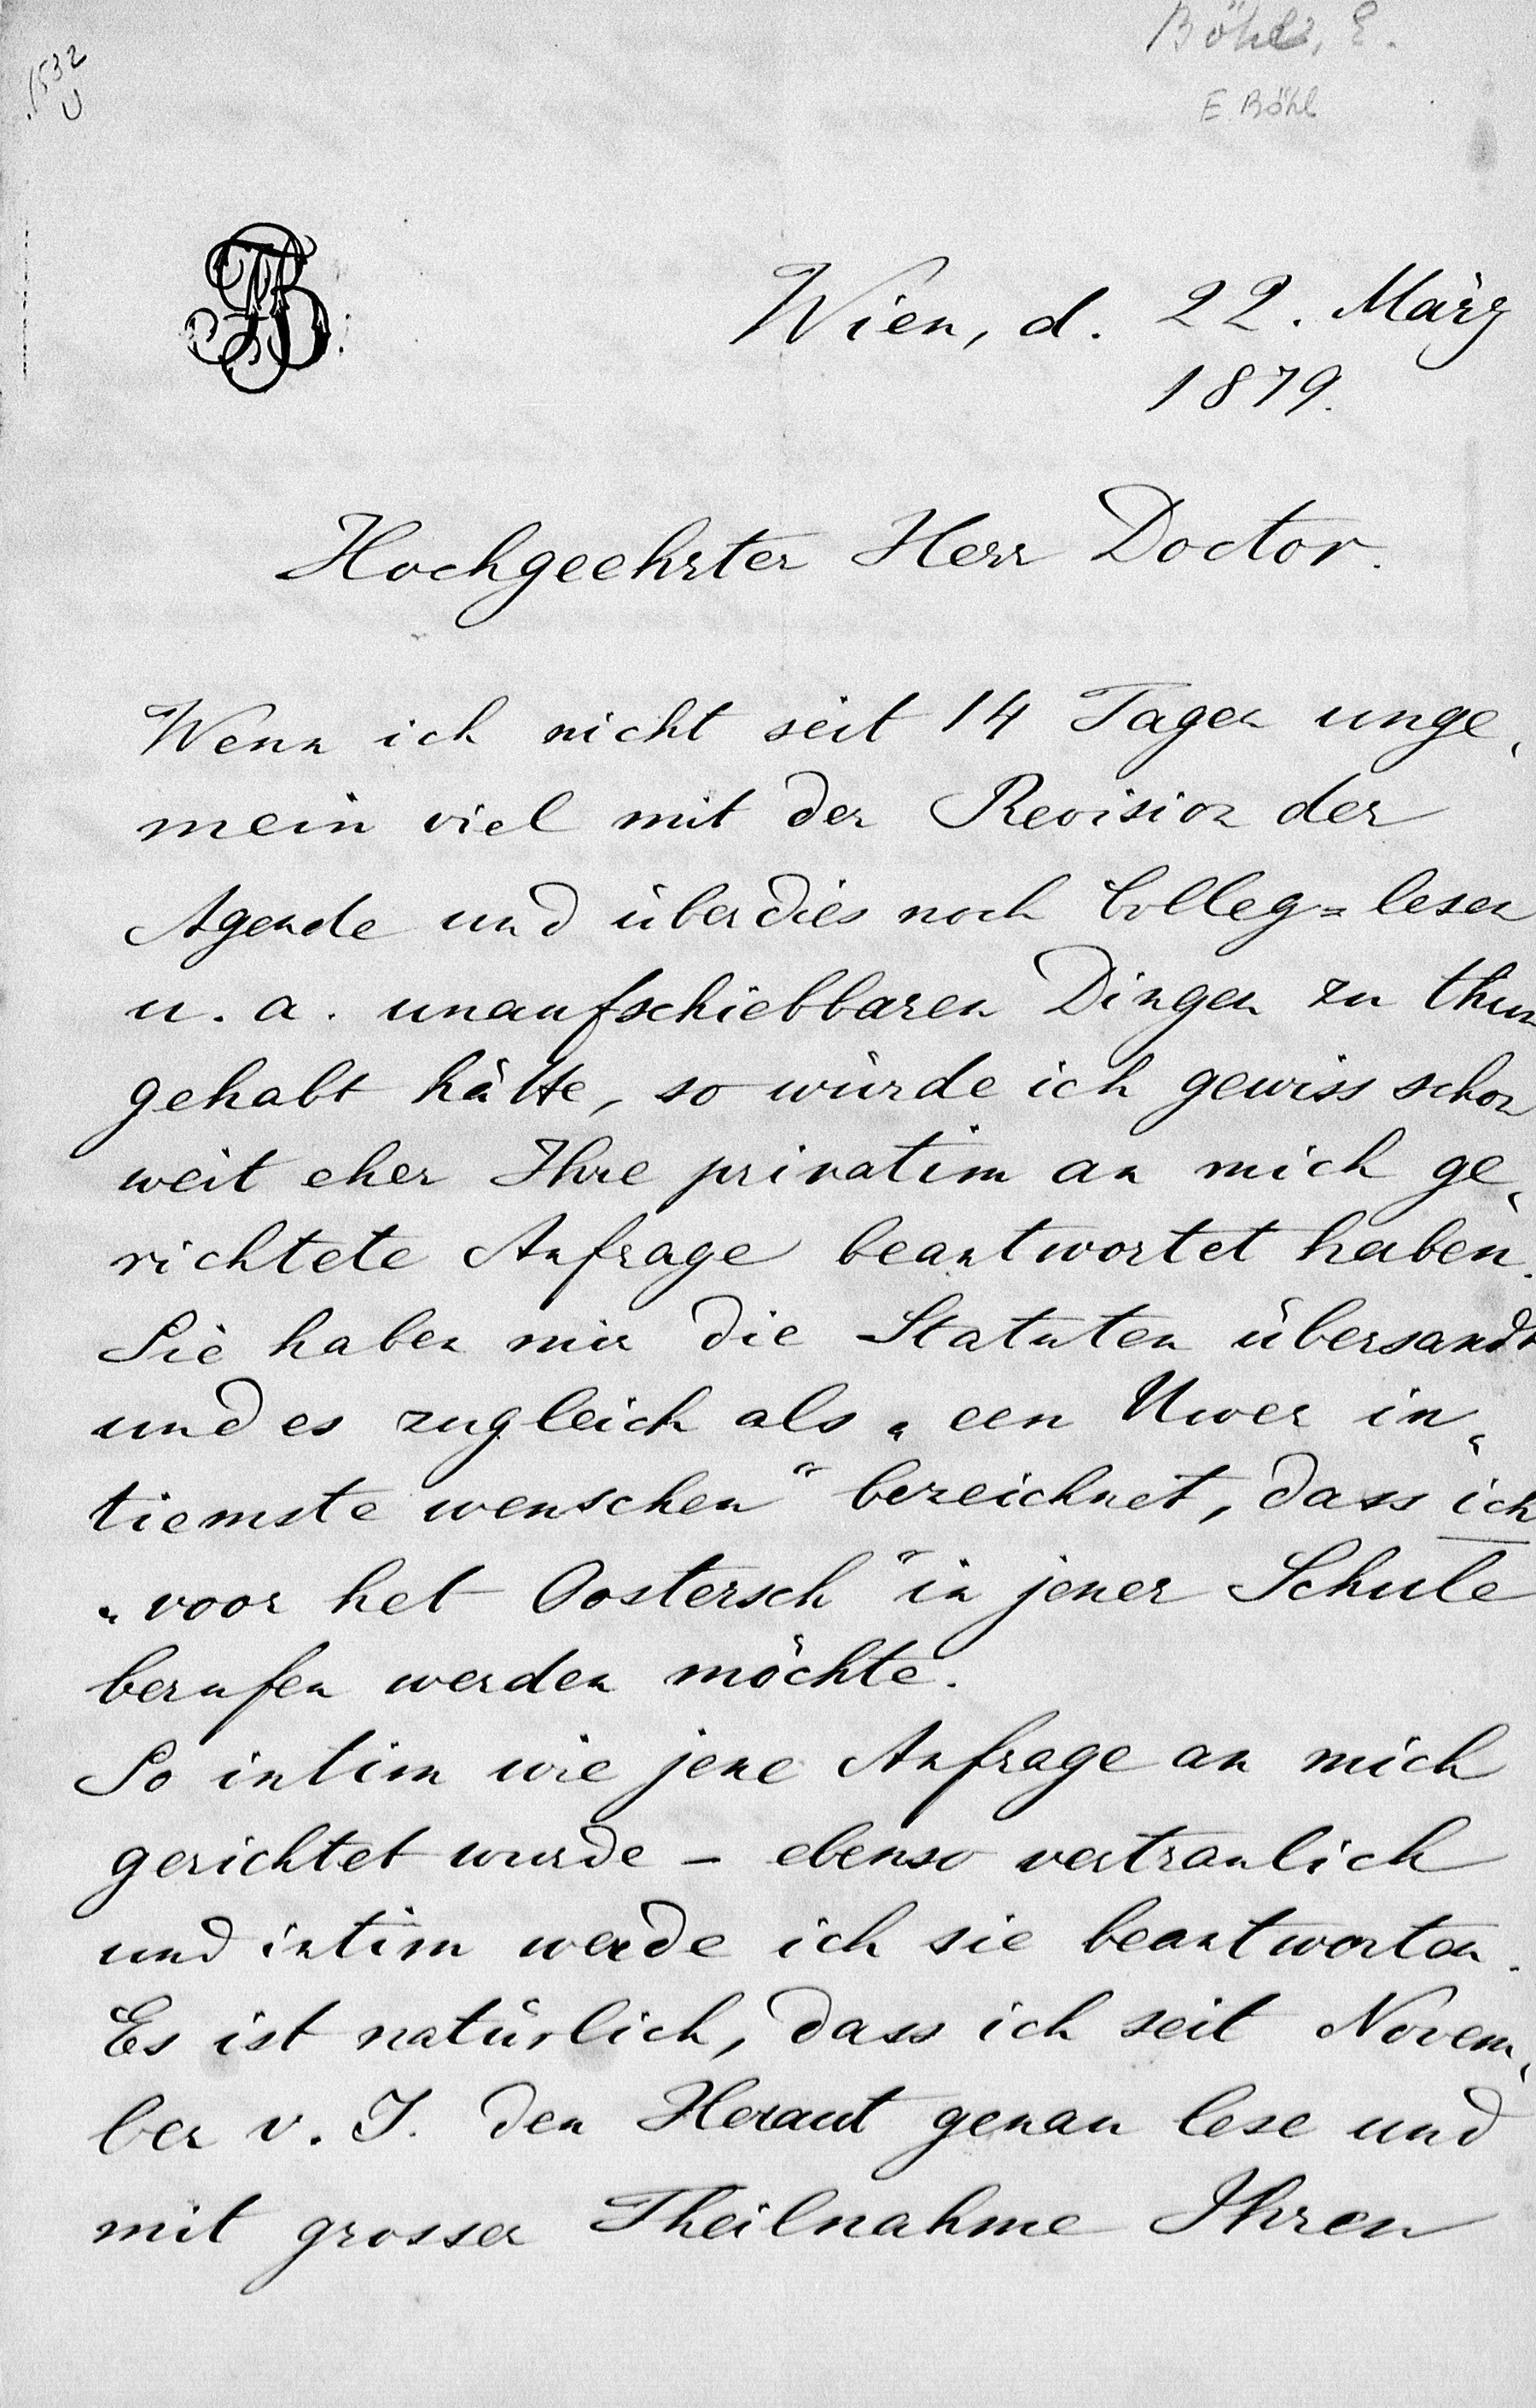 Böhl, E.
E. Böhl
1532
U
Wien, d. 22. März
1879.
Hochgeehrter Herr Doctor.
Wenn ich nicht seit 14 Tagen unge„
mein viel mit der Revision der
Agende und überdies noch Colleg=lesen
u. a. unaufschiebbaren Dingen zu thun
gehabt hätte, so würde ich gewiss schon
weit eher Ihre privatim an mich ge„
richtete Anfrage beantwortet haben.
Sie haben mir die Statuten übersandt
und es zugleich als „een Uwer in„
tiemste wenschen“ bezeichnet, dass ich
„voor het Oostersch“ in jener Schule
berufen werden möchte.
So intim wie jene Anfrage an mich
gerichtet wurde – ebenso vertraulich
und intim werde ich sie beantworten.
Es ist natürlich, dass ich seit Novem„
ber v. J. den Heraut genau lese und
mit grosser Theilnahme Ihren